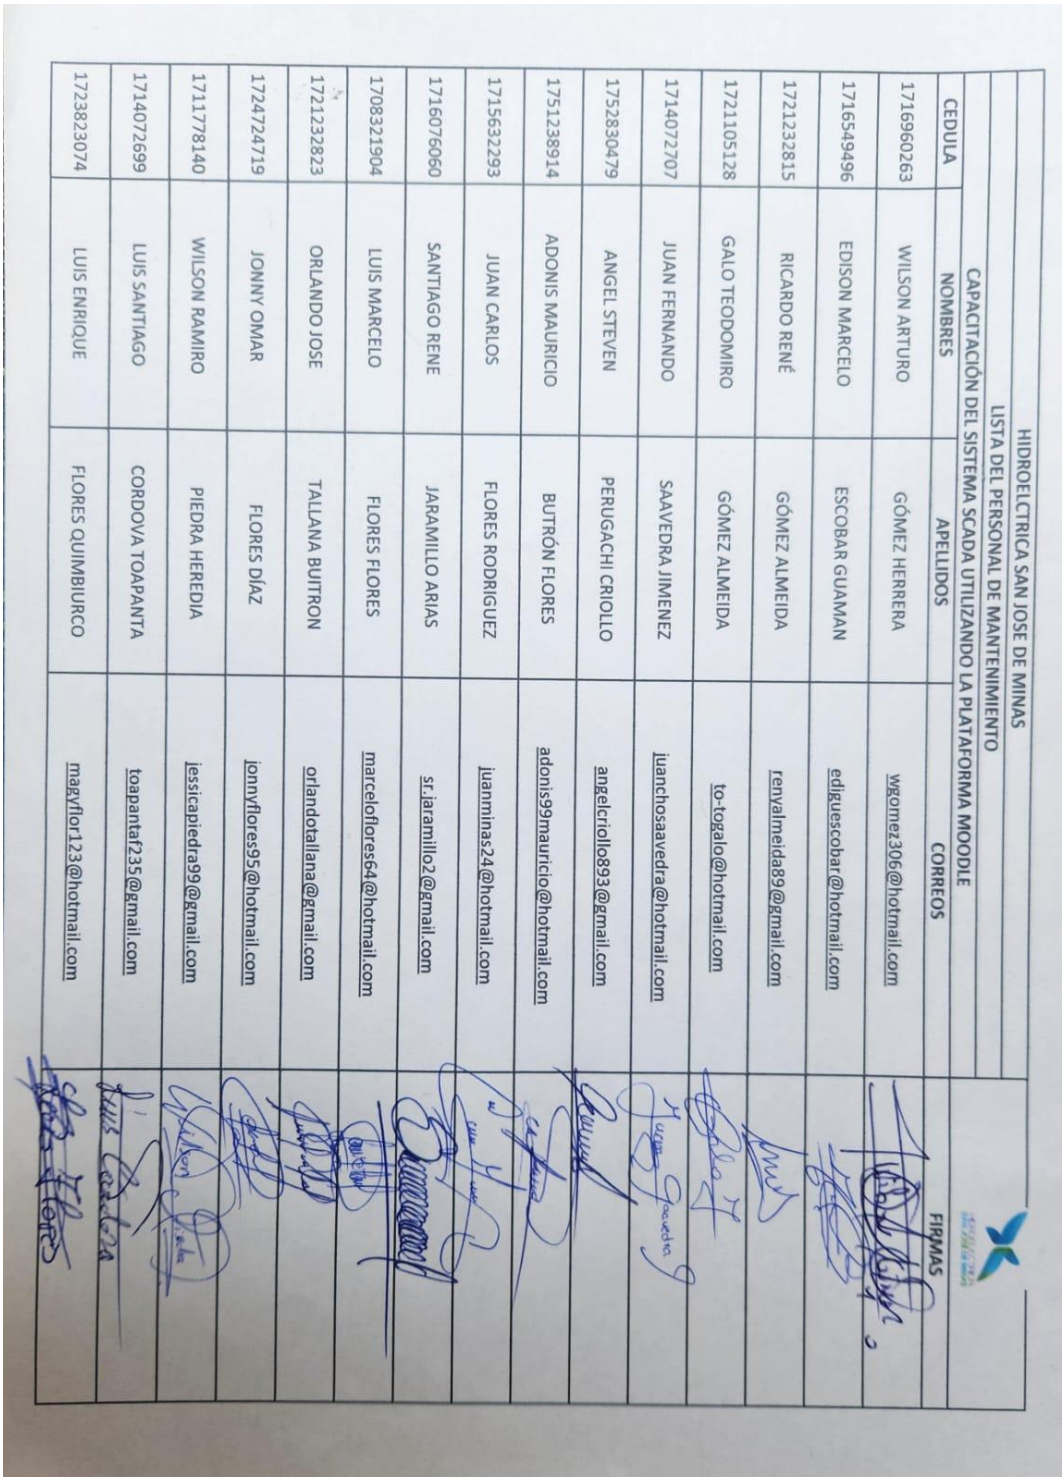 HIDROELCTRICA SAN JOSE DE MINAS
LISTA DEL PERSONAL DE MANTENIMIENTO
CAPACITACIÓN DEL SISTEMA SCADA UTILIZANDO LA PLATAFORMA MOODLE
CEDULA NOMBRES APELLIDOS CORREOS FIRMAS
1716960263 WILSON ARTURO GÓMEZ HERRERA wgomez306@hotmail.com
1716549496 EDISON MARCELO ESCOBAR GUAMAN ediguescobar@hotmail.com
1721232815 RICARDO RENÉ GÓMEZ ALMEIDA renyalmeida89@gmail.com
1721105128 GALO TEODOMIRO GÓMEZ ALMEIDA to-togalo@hotmail.com
1714072707 JUAN FERNANDO SAAVEDRA JIMENEZ juanchosaavedra@hotmail.com
1752830479 ANGEL STEVEN PERUGACHI CRIOLLO angelcriollo893@gmail.com
1751238914 ADONIS MAURICIO BUTRÓN FLORES adonis99mauricio@hotmail.com
1715632293 JUAN CARLOS FLORES RODRIGUEZ juanminas24@hotmail.com
1716076060 SANTIAGO RENE JARAMILLO ARIAS sr.jaramillo2@gmail.com
1708321904 LUIS MARCELO FLORES FLORES marceloflores64@hotmail.com
1721232823 ORLANDO JOSE TALLANA BUITRON orlandotallana@gmail.com
1724724719 JONNY OMAR FLORES DÍAZ jonnyflores95@hotmail.com
1711778140 WILSON RAMIRO PIEDRA HEREDIA jessicapiedra99@gmail.com
1714072699 LUIS SANTIAGO CORDOVA TOAPANTA toapantaf235@gmail.com Luis Cordova
1723823074 LUIS ENRIQUE FLORES QUIMBIURCO magyflor123@hotmail.com